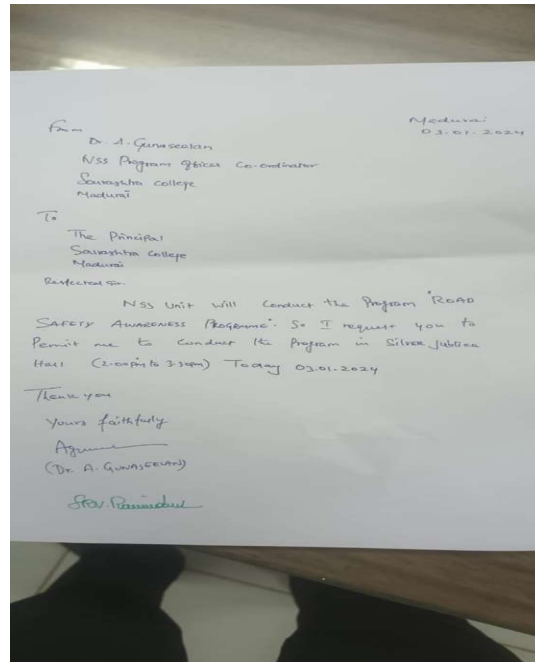 Madurai
03-01-2024
From
Dr. A. Gunaseelan
NSS Program Officer Co-ordinator
Sourashtra College
Madurai
To
The Principal
Sourashtra College
Madurai
Respected sir.
NSS Unit will Conduct the Program "ROAD
SAFETY AWARENESS PROGRAMME". So I request you to
Permit me to Conduct the Program in Silver Jubilee
Hall (2.00pm to 3.30pm) Today 03.01.2024
Thank you
Yours faithfully
(Dr. A. GUNASEELAN)